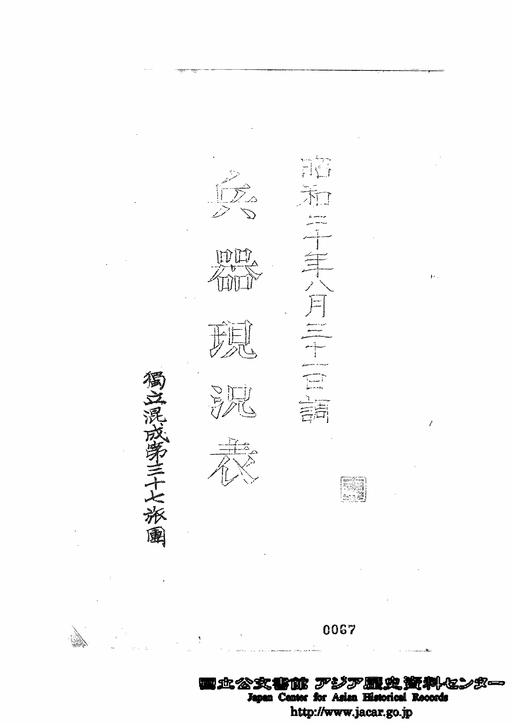 昭和二十年八月三十一日調
兵器現況表
獨立混成第三十七旅團
0067
國立公文書館 アジア歴史資料センター
Japan Center for Asian Historical Records
http://www.jacar.go.jp